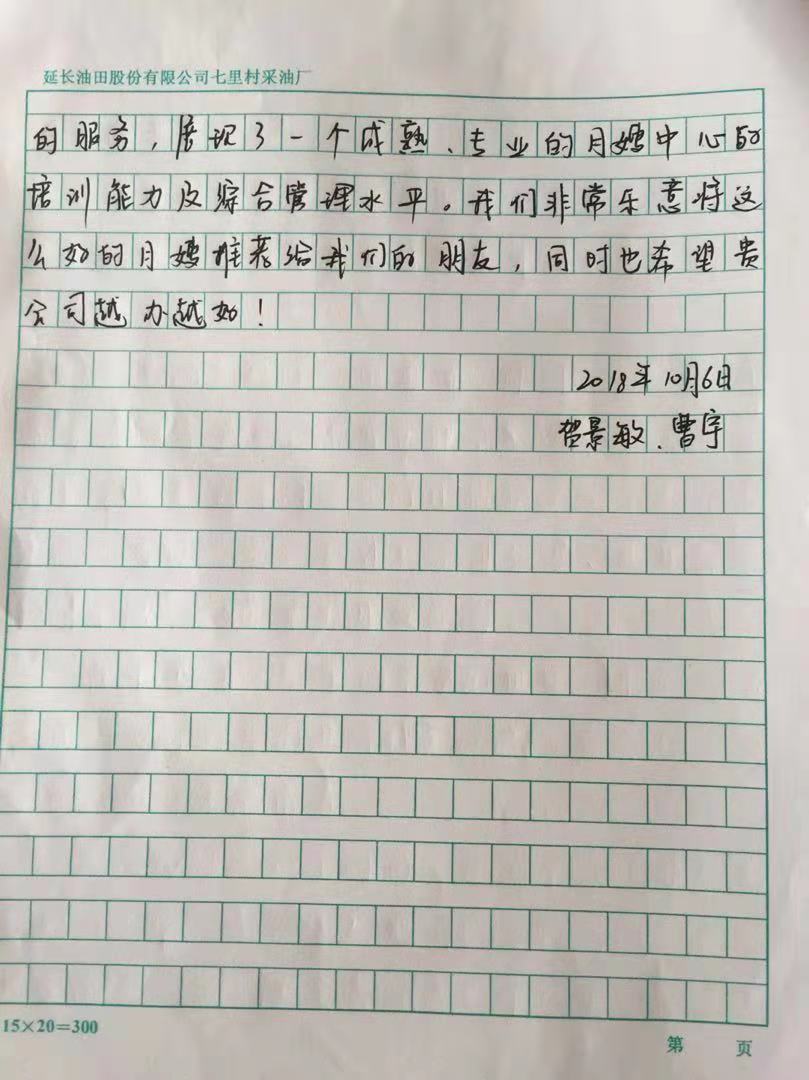 延长油田股份有限公司七里村采油厂
的服务，展现了一个成熟、专业的月嫂中心的
培训能力及综合管理水平。我们非常乐意将这
么好的月嫂推荐给我们的朋友，同时也希望贵
公司越办越好！
2018年10月6日
贺景敏、曹宇
15×20=300
第 页